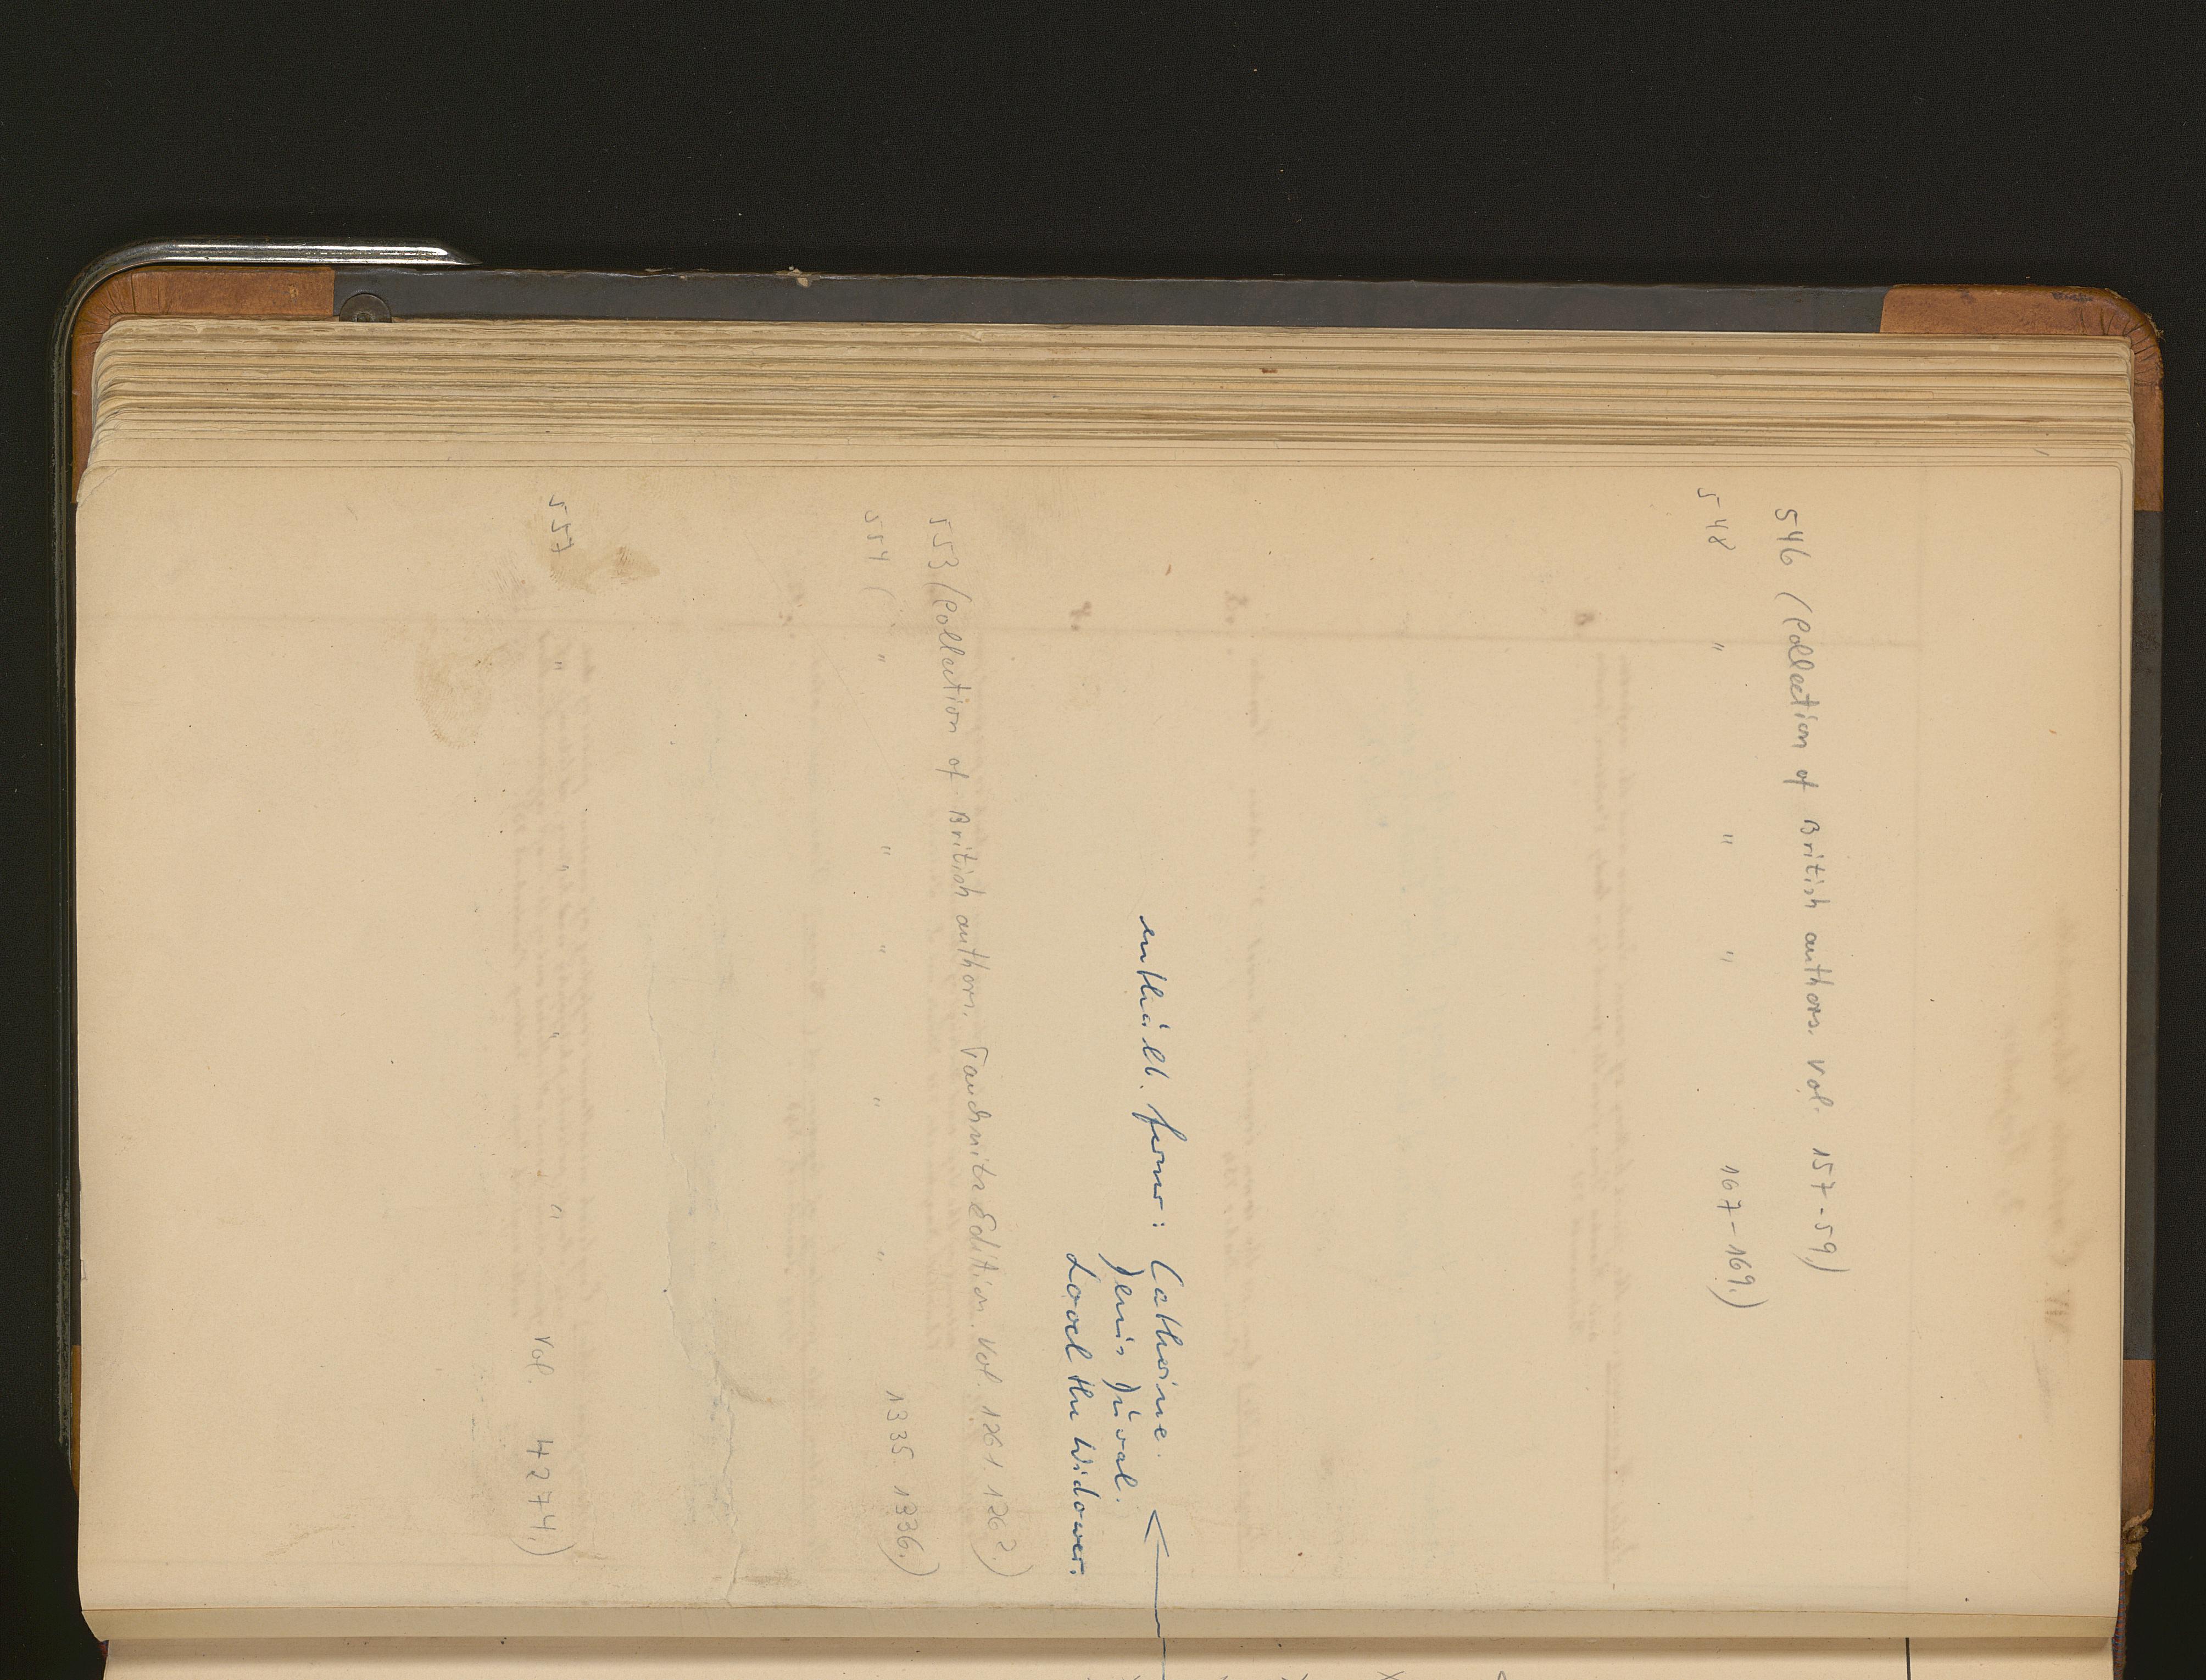 546 (Collection of British authors. Vol. 157-59)
548 " " " 167-169.)
enthält ferner: Catherine.
Denis Duval.
Lovel the Widower.
553 (Collection of British authors. Tauchnitz Edition. Vol. 1261. 1262.)
554 ( " " " " " 1335. 1336.)
557 " " " " Vol. 4274.)